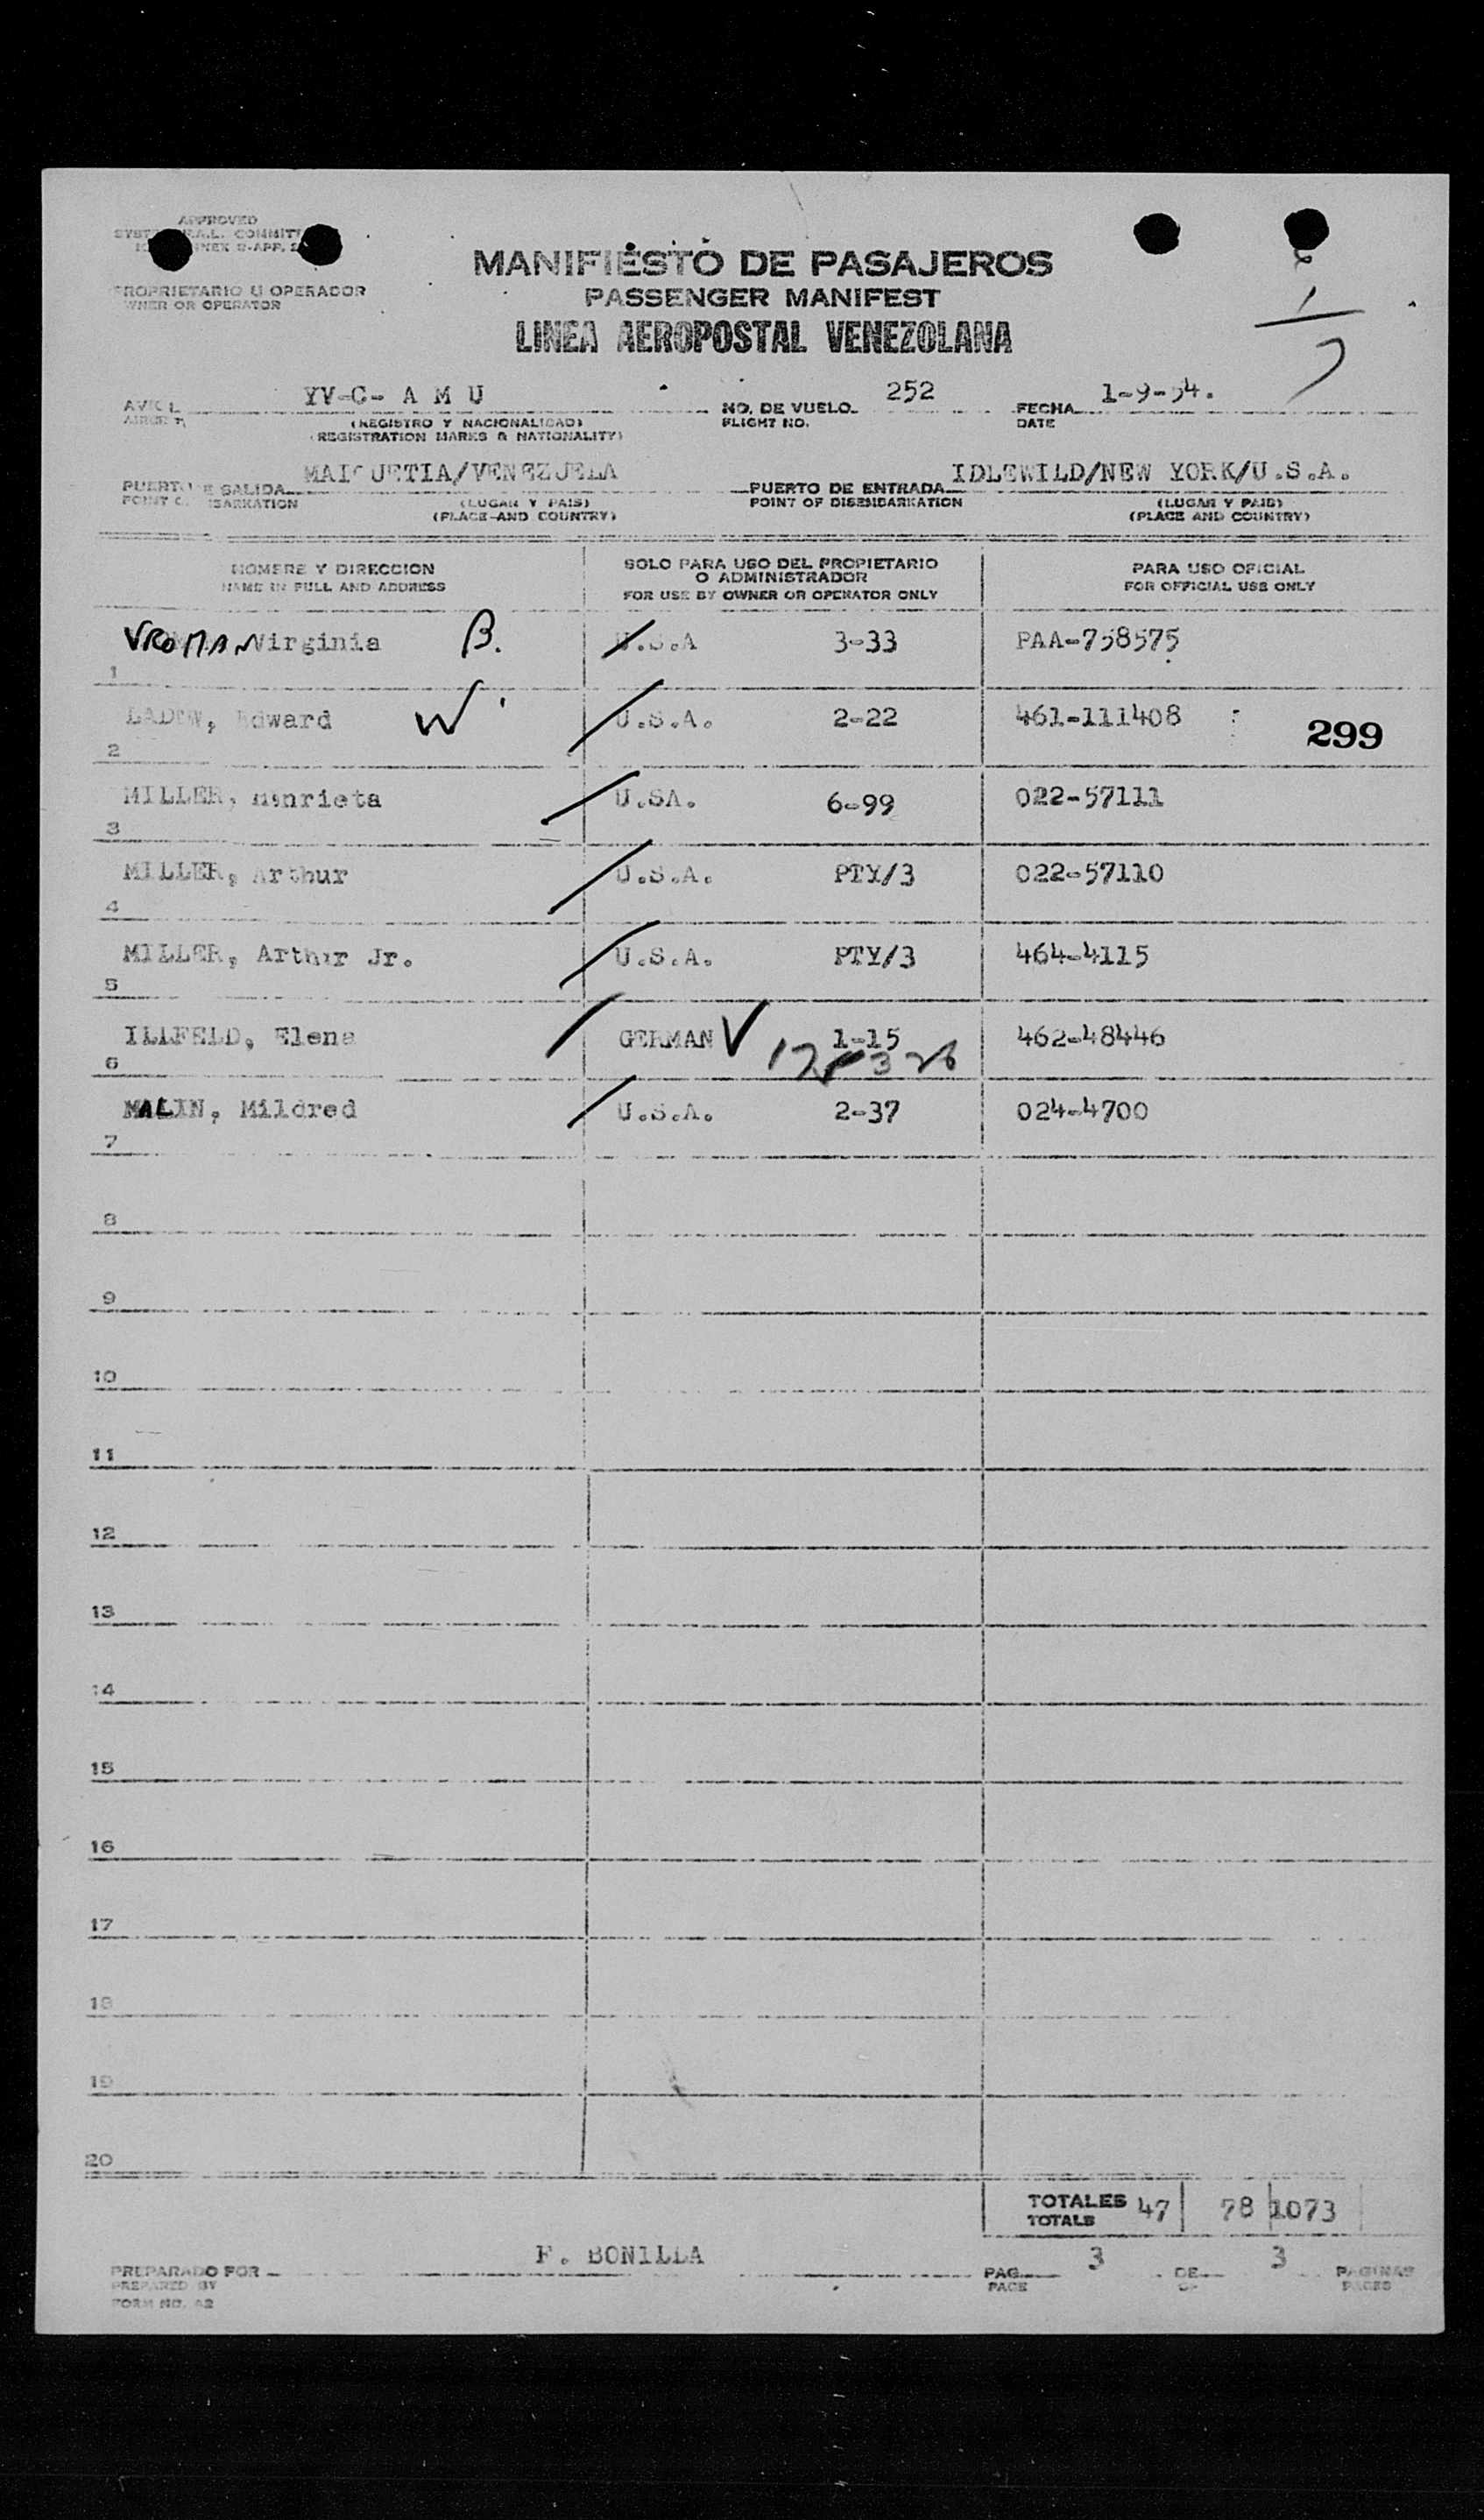 APPROVED
MANIFIESTO DE PASAJEROS
PASSENGER MANIFEST
LINEA AEROPOSTAL VENEZOLANA
PROPRIETARIO U OPERADOR
OWNER OR OPERATOR
1
7
YV-C- A M U
NO. DE VUELO 252
FLIGHT NO.
FECHA 1-9-54.
DATE
(REGISTRO Y NACIONALIDAD)
(REGISTRATION MARKS & NATIONALITY)
PUERTO DE SALIDA MAIQUETIA/VENEZUELA
PUERTO DE ENTRADA IDLEWILD/NEW YORK/U.S.A.
POINT OF DISEMBARKATION
(LUGAR Y PAIS) (LUGAR Y PAIS)
(PLACE AND COUNTRY) (PLACE AND COUNTRY)
NOMBRE Y DIRECCION
NAME IN FULL AND ADDRESS
SOLO PARA USO DEL PROPIETARIO
O ADMINISTRADOR
FOR USE BY OWNER OR OPERATOR ONLY
PARA USO OFICIAL
FOR OFFICIAL USE ONLY
VROMAN Virginia B. U.S.A 3-33 PAA-758575
1
Edward W U.S.A. 2-22 461-111408
299
2
MILLER, Henrieta U.SA. 6-99 022-57111
3
MILLER, Arthur U.S.A. PTY/3 022-57110
4
MILLER, Arthur Jr. U.S.A. PTY/3 464-4115
5
ILLFELD, Elena GERMAN V 1-15 462-48446
6
MALIN, Mildred U.S.A. 2-37 024-4700
7
8
9
10
11
12
13
14
15
16
17
18
19
20
TOTALES 47 78 1073
TOTALS
F. BONILLA
PREPARADO POR
PREPARED BY
FORM NO. A2
PAG. 3 DE 3 PAGINAS
PAGE OF PAGES